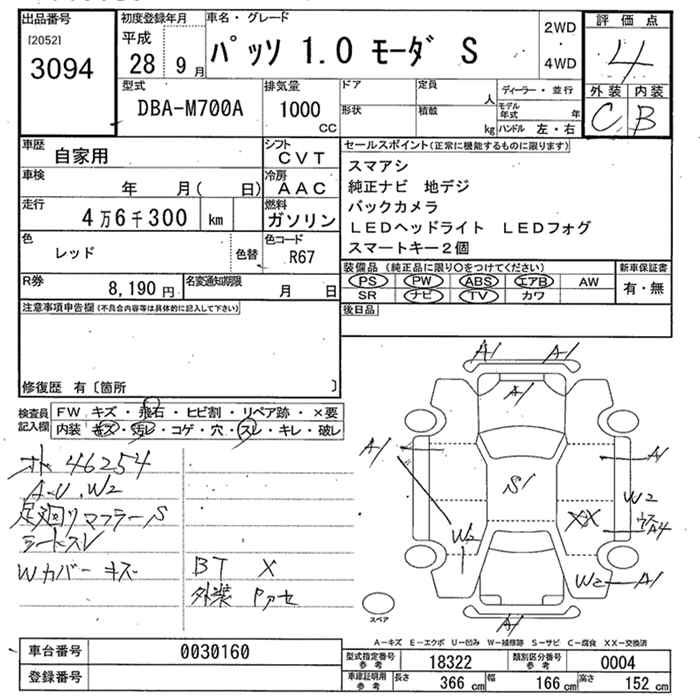 出品番号 初度登録年月 車名・グレード 評価点
[2052]
3094
平成
28 9月
パッソ 1.0 モーダ S
2WD
・
4WD
4
外装 内装
C B
型式 排気量 ドア 定員 ディーラー・並行
DBA-M700A 1000 CC 人
形状 積載 モデル年式 年
kg ハンドル 左・右
車歴 シフト セールスポイント(正常に機能するものに限ります)
自家用 CVT
スマアシ
車検 年 月( 日) 冷房 AAC
純正ナビ 地デジ
走行 4万6千300 km 燃料 ガソリン
バックカメラ
LEDヘッドライト LEDフォグ
色 レッド 色替 色コード R67
スマートキー2個
R券 8,190円 名変通知期限 月 日
装備品(純正品に限り○をつけてください) 新車保証書
PS PW ABS エアB AW
SR ナビ TV カワ
有・無
注意事項申告欄(不具合内容等は具体的に記入して下さい) 後日品
修復歴 有〔箇所 〕
検査員記入欄 FW キズ・飛石・ヒビ割・リペア跡・×要
内装 キズ・汚レ・コゲ・穴・スレ・キレ・破レ
46254
A・U.W2
足廻り マフラーS
シートスレ
Wカバーキズ BT X
外装
A1 A1
A1
A1 A1
S1 W2
W2 XX
W2 A1
A1
スペア
A-キズ E-エクボ U-凹み W-補修跡 S-サビ C-腐食 XX-交換済
車台番号 0030160
型式指定番号参考 18322 類別区分番号参考 0004
登録番号
車庫証明用参考 長さ 366 cm 幅 166 cm 高さ 152 cm